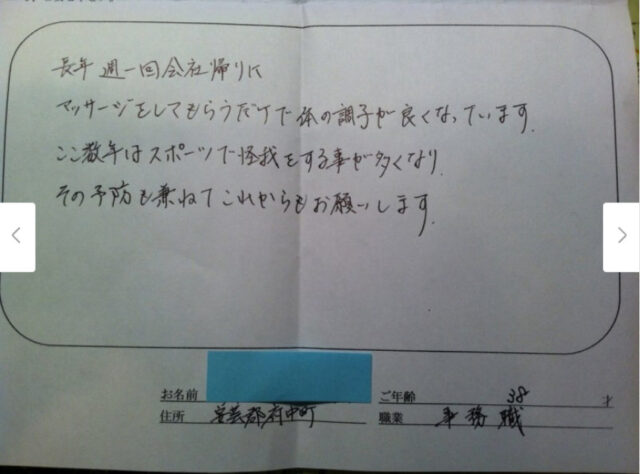 長年週一回会社帰りに
マッサージをしてもらうだけで体の調子が良くなっています.
ここ数年はスポーツで怪我をする事が多くなり
その予防も兼ねてこれからもお願いします.
お名前
ご年齢 38 才
住所 安芸郡府中町
職業 事務職